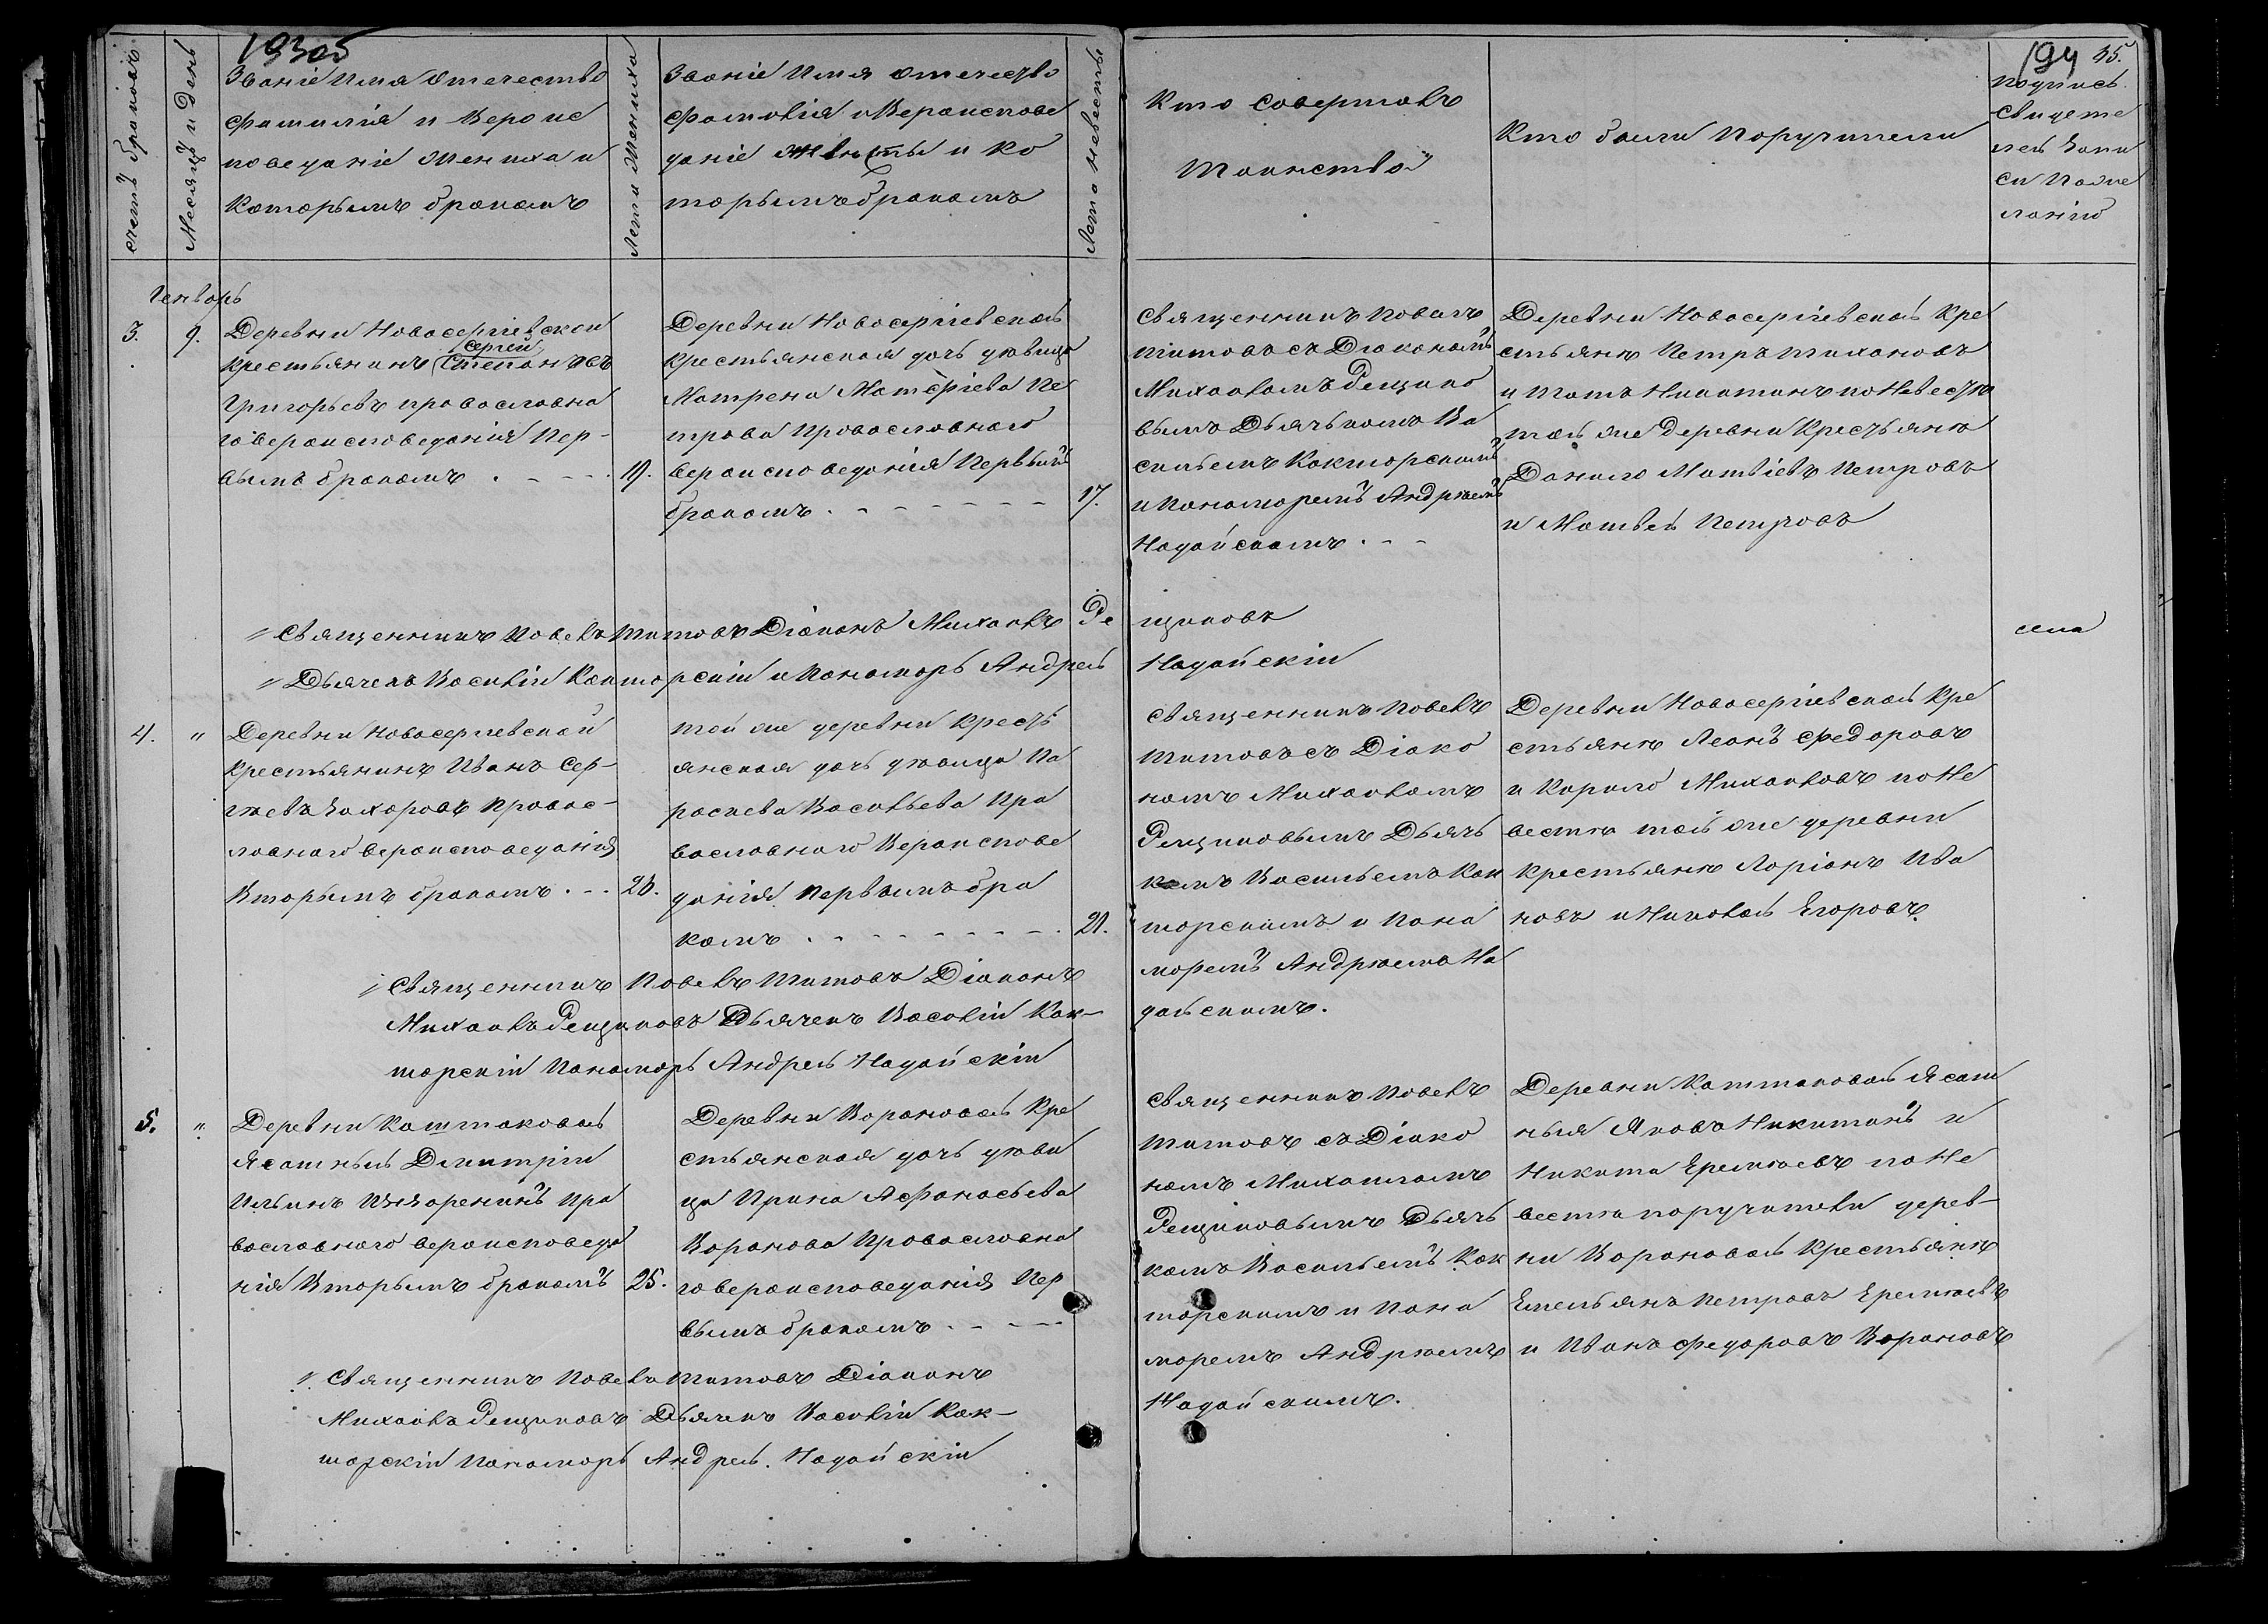 193об
счетъ браковъ
Месяцъ и день
Званіе Имя Отечество
Фамилія и Вероис
поведаніе Жениха и
Которымъ бракомъ
Лета Жениха
Званіе Имя Отечество
Фамилія и Вероисповѣ
даніе Невѣсты и Ко
торымъ бракомъ
Лета Невесты
Генварь
3.
9.
Деревни Новосергіевской
Сергей
крестьянинъ Степановъ
Григорьевъ православна
го вероисповеданія Пер-
вымъ бракомъ
19.
Деревни Новосергіевской
крестьянская дочь дѣвица
Матрена Матѳеіева Пе
трова Православнаго
вероисповеданія Первымъ
бракомъ
17.
" Священникъ Павелъ Титовъ Діаконъ Михаилъ Ре
" Дьячекъ Василій Какторскій и Пономорь Андрей
4.
"
Деревни Новосергіевской
крестьянинъ Иванъ Сер-
гѣевъ Захаровъ Правос-
лавнаго вероисповеданія
Вторымъ бракомъ
26.
Той же деревни крестъ
янская дочь дѣвица Па
раскева Васильева Пра
вославнаго Вероисповѣ
данія Первымъ бра
комъ
21.
" Священникъ Павелъ Титовъ Діаконъ
Михаилъ Рещиковъ Дьячекъ Василій Как-
торскій Пономорь Андрей Надайскій
5.
"
Деревни Каштаковой
Ясашный Дмитрій
Ильинъ Инзаренинъ Пра
вославнаго вероисповеда
нія Вторымъ бракомъ
25.
Деревни Вороновой Кре
стьянская дочь дѣви
ца Ирина Афанасьева
Воронова Православна
го вероисповеданія Пер
вымъ бракомъ
". Священникъ Павелъ Титовъ Діаконъ
Михаилъ Рещиковъ Дьячекъ Василій Как-
торскій Пономорь Андрей. Надайскій
194
35.
Кто Совершалъ
Таинство
Кто были Поручители
Подпись
Свидете
лей Запи
си По же
ланію
Священникъ Павелъ
Титовъ съ Діакономъ
Михаиломъ Рещико
вымъ Дьячькомъ Ва
сильемъ Какторскимъ
и Пономоремъ Андрѣемъ
Надайскимъ
Деревни Новосергіевской Кре
стьянѣ Петръ Тихановъ
и Титъ Никитинъ по Невестѣ
той же деревни Крестьянѣ
Данило Матвѣевъ Петровъ
и Матвей Петровъ
щиковъ
Надайскій
Священникъ Павелъ
Титовъ съ Діако
номъ Михаиломъ
Рещиковымъ Дьячь
комъ Васильемъ Как
торскимъ и Поно
моремъ Андрѣемъ На
дайскимъ.
Деревни Новосергіевской Кре
стьянѣ Леонъ Федоровъ
и Карило Михаиловъ по Не
вестѣ той же деревни
крестьянѣ Ларіонъ Ива
новъ и Николай Егоровъ.
Священникъ Павелъ
Титовъ съ Діако
номъ Михаиломъ
Рещиковымъ Дьячь
комъ Васильемъ Как
торскимъ и Поно
моремъ Андрѣемъ
Надайскимъ.
Деревни Каштаковой Ясаш
ныя Яковъ Никитинъ и
Никита Еремѣевъ по Не
вестѣ поручители дерев-
ни Вороновой Крестьянѣ
Емельянъ Петровъ Еремѣевъ
и Иванъ Федоровъ Вороновъ